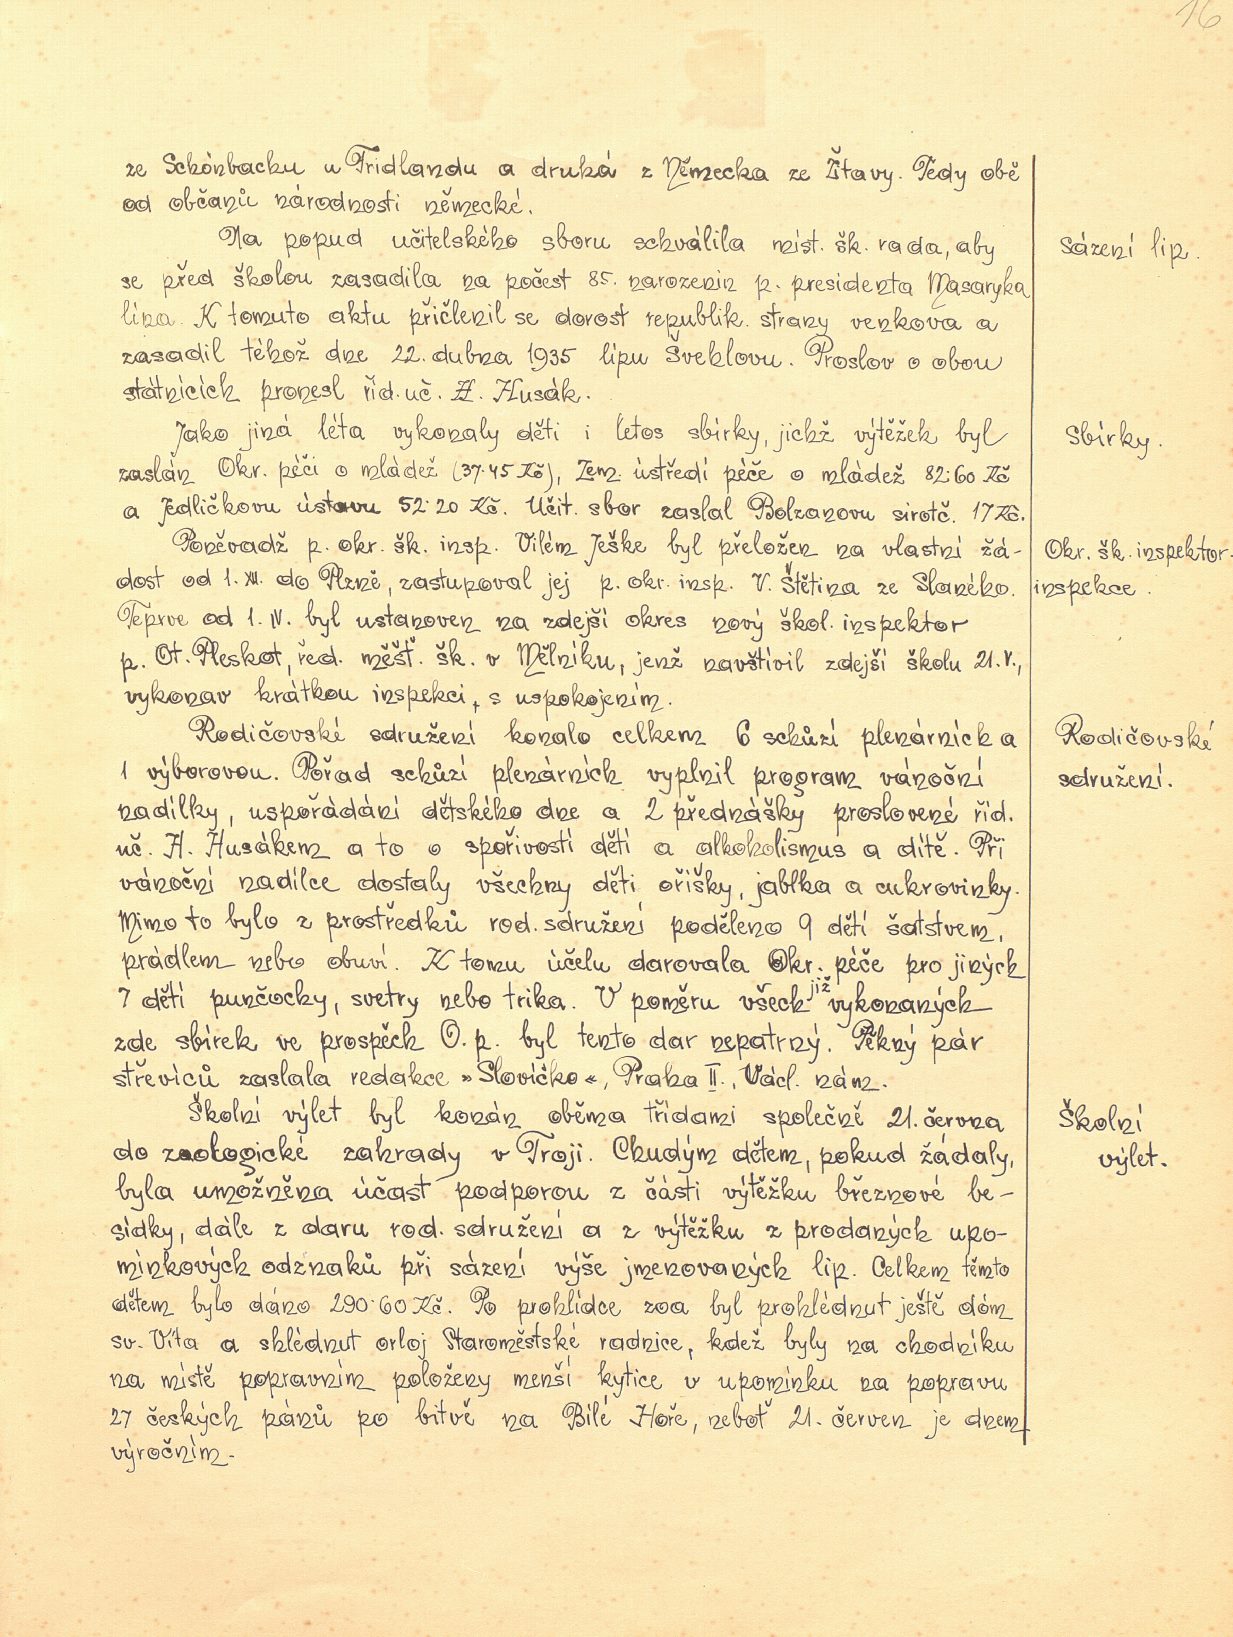 16
ze Schönbachu u Fridlandu a druhá z Německa ze Žitavy. Tedy obě
od občanů národnosti německé.
Na popud učitelského sboru schválila míst. šk. rada, aby
Sázení lip.
se před školou zasadila na počest 85. narozenin p. presidenta Masaryka
lípa. K tomuto aktu přičlenil se dorost republik. strany venkova a
zasadil téhož dne 22. dubna 1935 lípu Švehlovu. Proslov o obou
státnících pronesl říd. uč. H. Husák.
Jako jiná léta vykonaly děti i letos sbírky, jichž výtěžek byl
Sbírky.
zaslán Okr. péči o mládež (37.45 Kč), Zem. ústředí péče o mládež 82.60 Kč
a Jedličkovu ústavu 52.20 Kč. Učit. sbor zaslal Bolzanovu sirotč. 17 Kč.
Poněvadž p. okr. šk. insp. Vilém Ješke byl přeložen na vlastní žá-
Okr. šk. inspektor.
dost od 1. XII. do Plzně, zastupoval jej p. okr. insp. V. Štětina ze Slaného.
inspekce.
Teprve od 1. IV. byl ustanoven na zdejší okres nový škol. inspektor
p. Ot. Pleskot, řed. měšť. šk. v Mělníku, jenž navštívil zdejší školu 21. V.,
vykonav krátkou inspekci, s uspokojením.
Rodičovské sdružení konalo celkem 6 schůzí plenárních a
Rodičovské
1 výborovou. Pořad schůzí plenárních vyplnil program vánoční
sdružení.
nadílky, uspořádání dětského dne a 2 přednášky proslovené říd.
uč. H. Husákem a to o spořivosti dětí a alkoholismus a dítě. Při
vánoční nadílce dostaly všechny děti oříšky, jablka a cukrovinky.
Mimo to bylo z prostředků rod. sdružení poděleno 9 dětí šatstvem,
prádlem nebo obuví. K tomu účelu darovala Okr. péče pro jiných
7 dětí punčochy, svetry nebo trika. V poměru všech již vykonaných
zde sbírek ve prospěch O. p. byl tento dar nepatrný. Pěkný pár
střevíců zaslala redakce »Slovíčko«, Praha II., Václ. nám.
Školní výlet byl konán oběma třídami společně 21. června
Školní
do zoologické zahrady v Troji. Chudým dětem, pokud žádaly,
výlet.
byla umožněna účast podporou z části výtěžku březnové be-
sídky, dále z daru rod. sdružení a z výtěžku z prodaných upo-
mínkových odznaků při sázení výše jmenovaných lip. Celkem těmto
dětem bylo dáno 290.60 Kč. Po prohlídce zoa byl prohlédnut ještě dóm
sv. Víta a shlédnut orloj Staroměstské radnice, kdež byly na chodníku
na místě popravním položeny menší kytice v upomínku na popravu
27 českých pánů po bitvě na Bílé Hoře, neboť 21. červen je dnem
výročním.